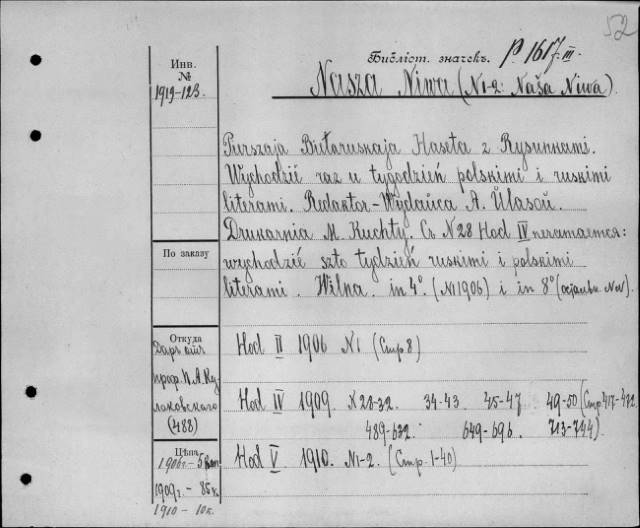 52
Библіот. значекъ. P. 1617/III.
Инв.
№
1919-123.
Nasza Niwa (N1-2: Naša Niwa).
Pierszaja Biełaruskaja Hazeta z Rysunkami.
Wychodzić raz u tygodzień polskimi i ruskimi
literami. Redaktor-Wydaŭca A. Ŭłasoŭ.
Drukarnia M. Kuchty. Съ N28 Hod IV печатается:
wychodzić szto tydzień ruskimi i polskimi
literami. Wilna. in 4° (N1 1906) i in 8° (остальн. NN).
По заказу
Откуда
Даръ отъ
проф. П. А. Ку
лаковскаго
(488)
Hod II 1906 N1 (Стр. 8)
Hod IV 1909. N 28-32. 34-43. 45-47. 49-50 (Стр. 417-472
489-632. 649-696. 713-744).
Цѣна
1906г. - 5 коп
1909г. - 85 к.
1910 - 10к.
Hod V. 1910. N1-2. (Стр. 1-40)